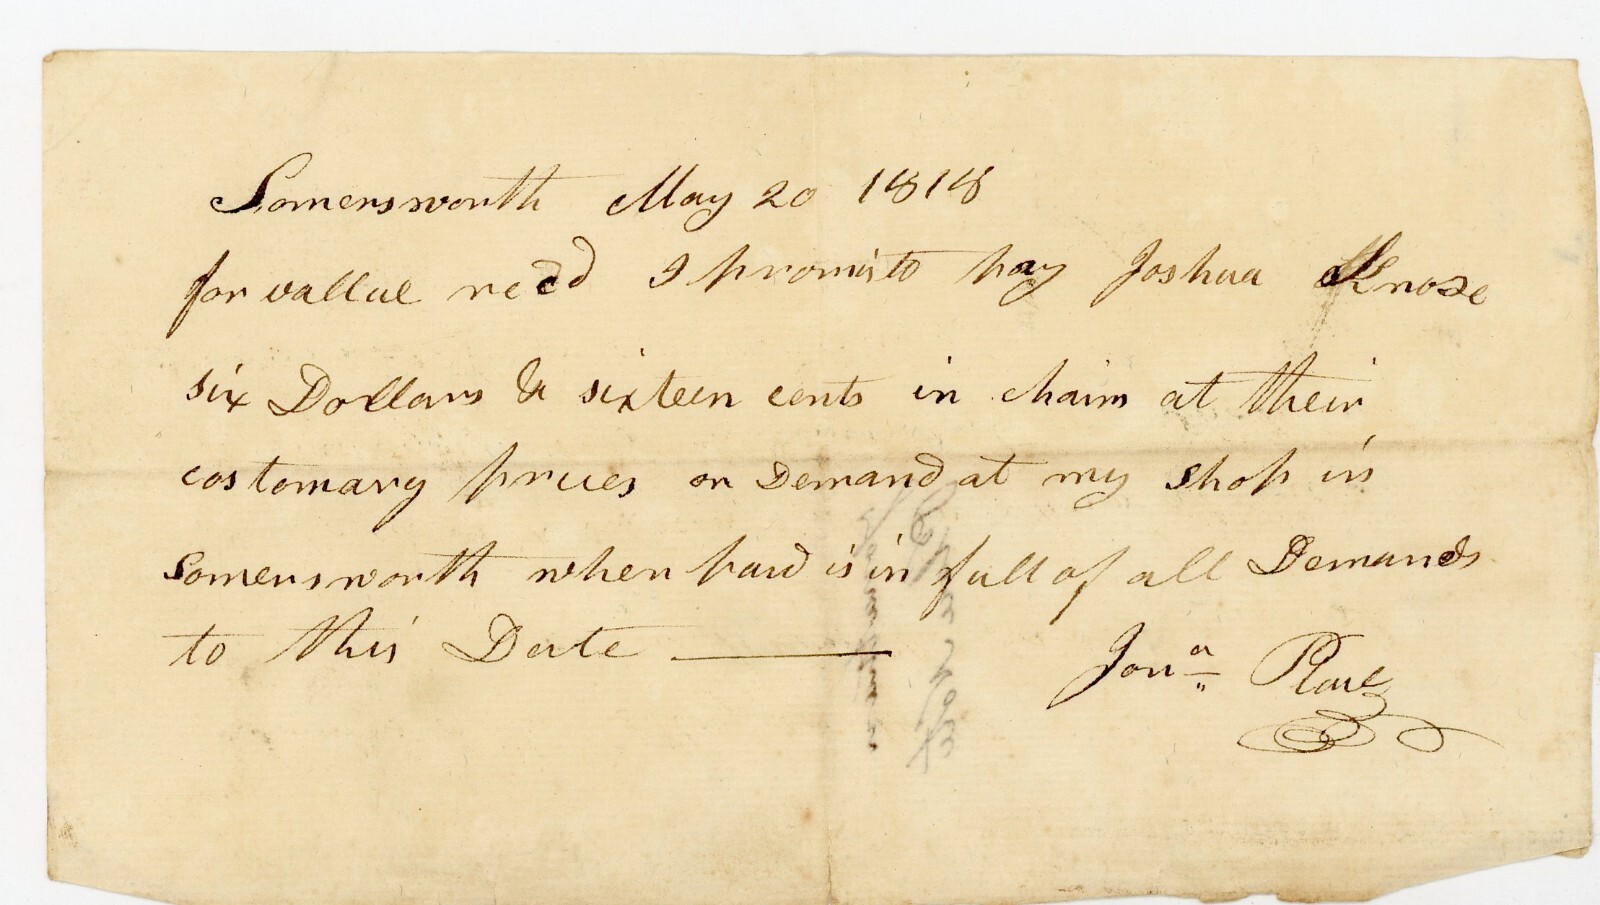 Somersworth May 20 1818
for vallue recd I promis to pay Joshua Knox
six Dollars & sixteen cents in chairs at their
costomary prices on Demand at my shop in
Somersworth when paid is in full of all Demands
to this Date
Jonª